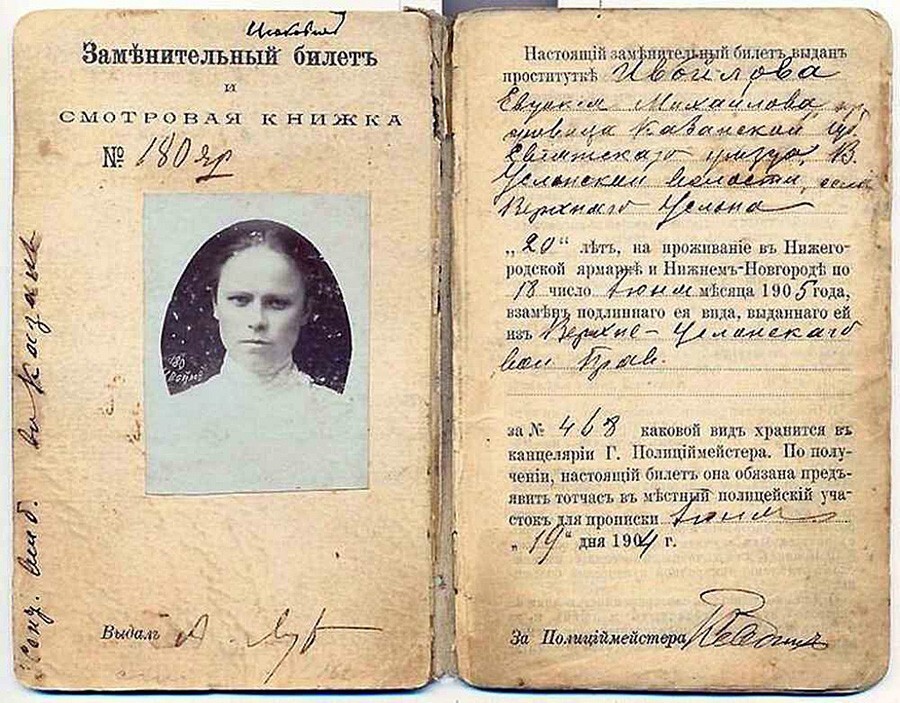 Замѣнительный билетъ
и
СМОТРОВАЯ КНИЖКА
№ 180 яр
180
Выдалъ А.
въ Казань
Настоящій замѣнительный билетъ выданъ
проституткѣ
Михайлова
Казанской губ
уѣзда, В.
Услонской волости, села
Верхняго Услона
„20“ лѣтъ, на проживаніе въ Нижего-
родской ярмаркѣ и Нижнемъ-Новгородѣ по
18 число іюня мѣсяца 1905 года,
взамѣнъ подлиннаго ея вида, выданнаго ей
изъ Верхне-Услонскаго
вол Прав.
за № 468 каковой видъ хранится въ
канцеляріи Г. Полиціймейстера. По полу-
ченіи, настоящій билетъ она обязана предъ-
явить тотчасъ въ мѣстный полицейскій уча-
стокъ для прописки іюня
„19“ дня 1904 г.
За Полиціймейстера